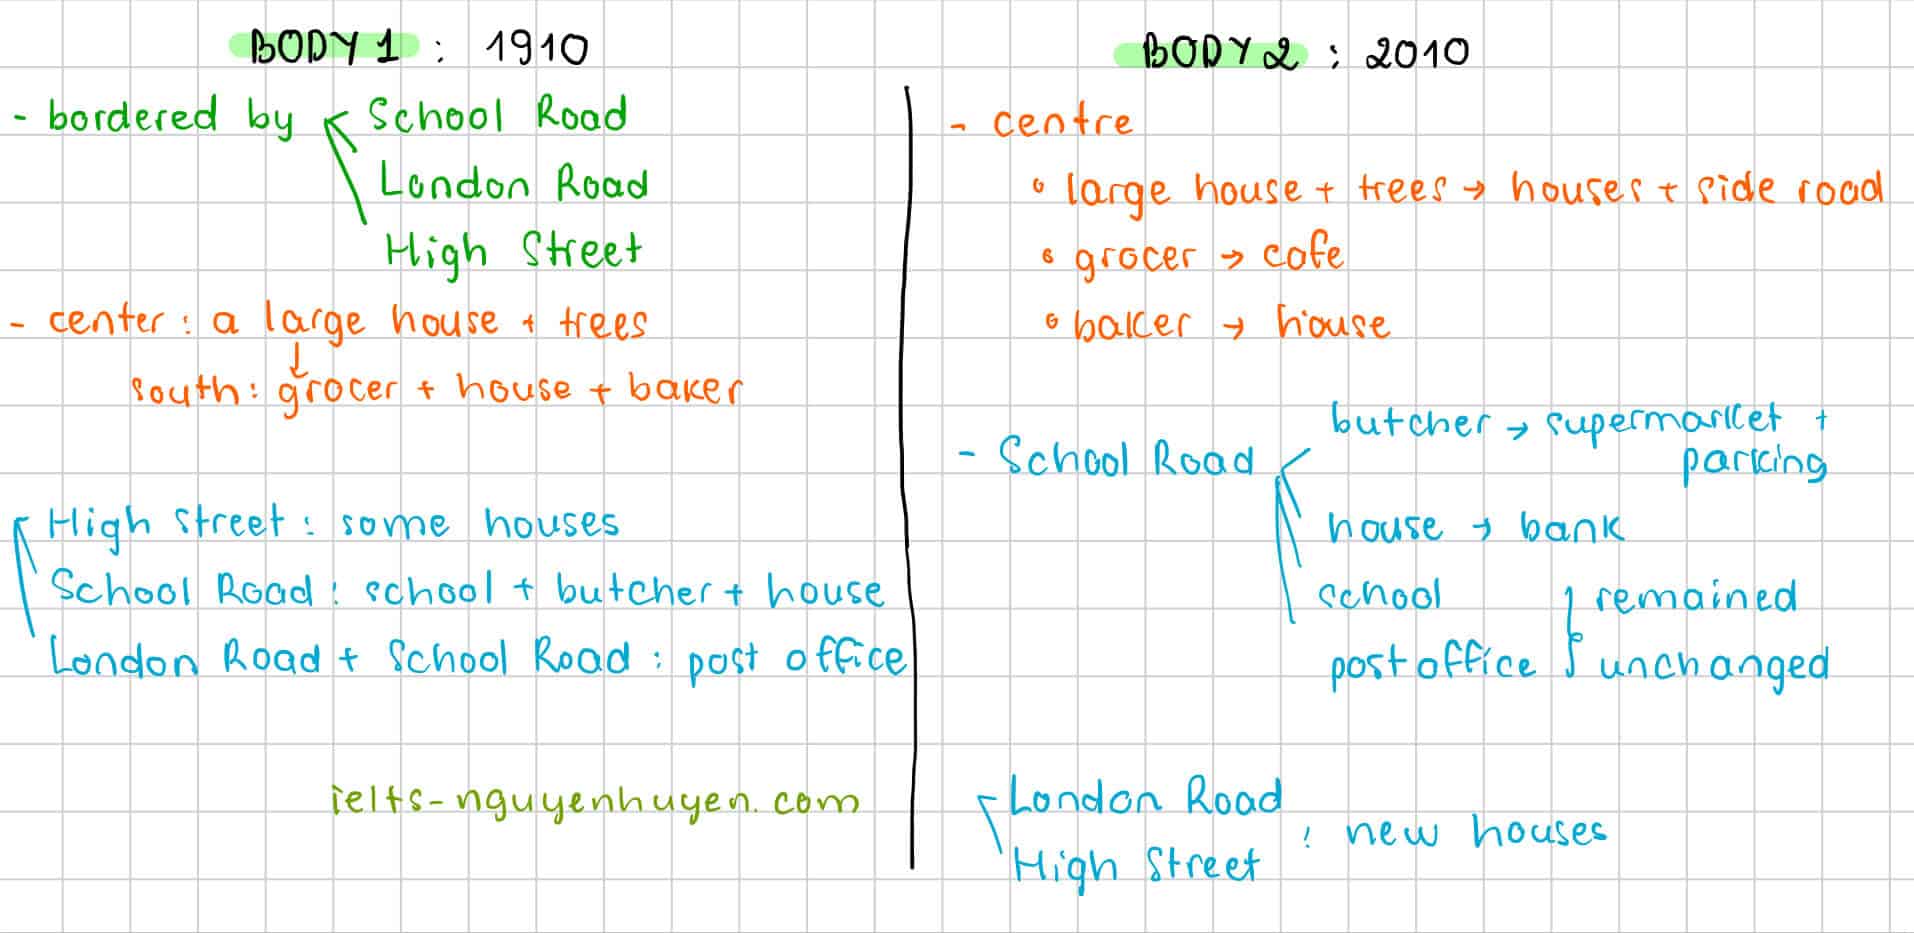 BODY 1 : 1910
- bordered by School Road
London Road
High Street
- center : a large house + trees
↓
south : grocer + house + baker
High Street : some houses
School Road : school + butcher + house
London Road + School Road : post office
ielts-nguyenhuyen.com
BODY 2 : 2010
- centre
• large house + trees → houses + side road
• grocer → cafe
• baker → house
- School Road
butcher → supermarket +
parking
house → bank
school
post office
remained
unchanged
London Road
High Street
: new houses